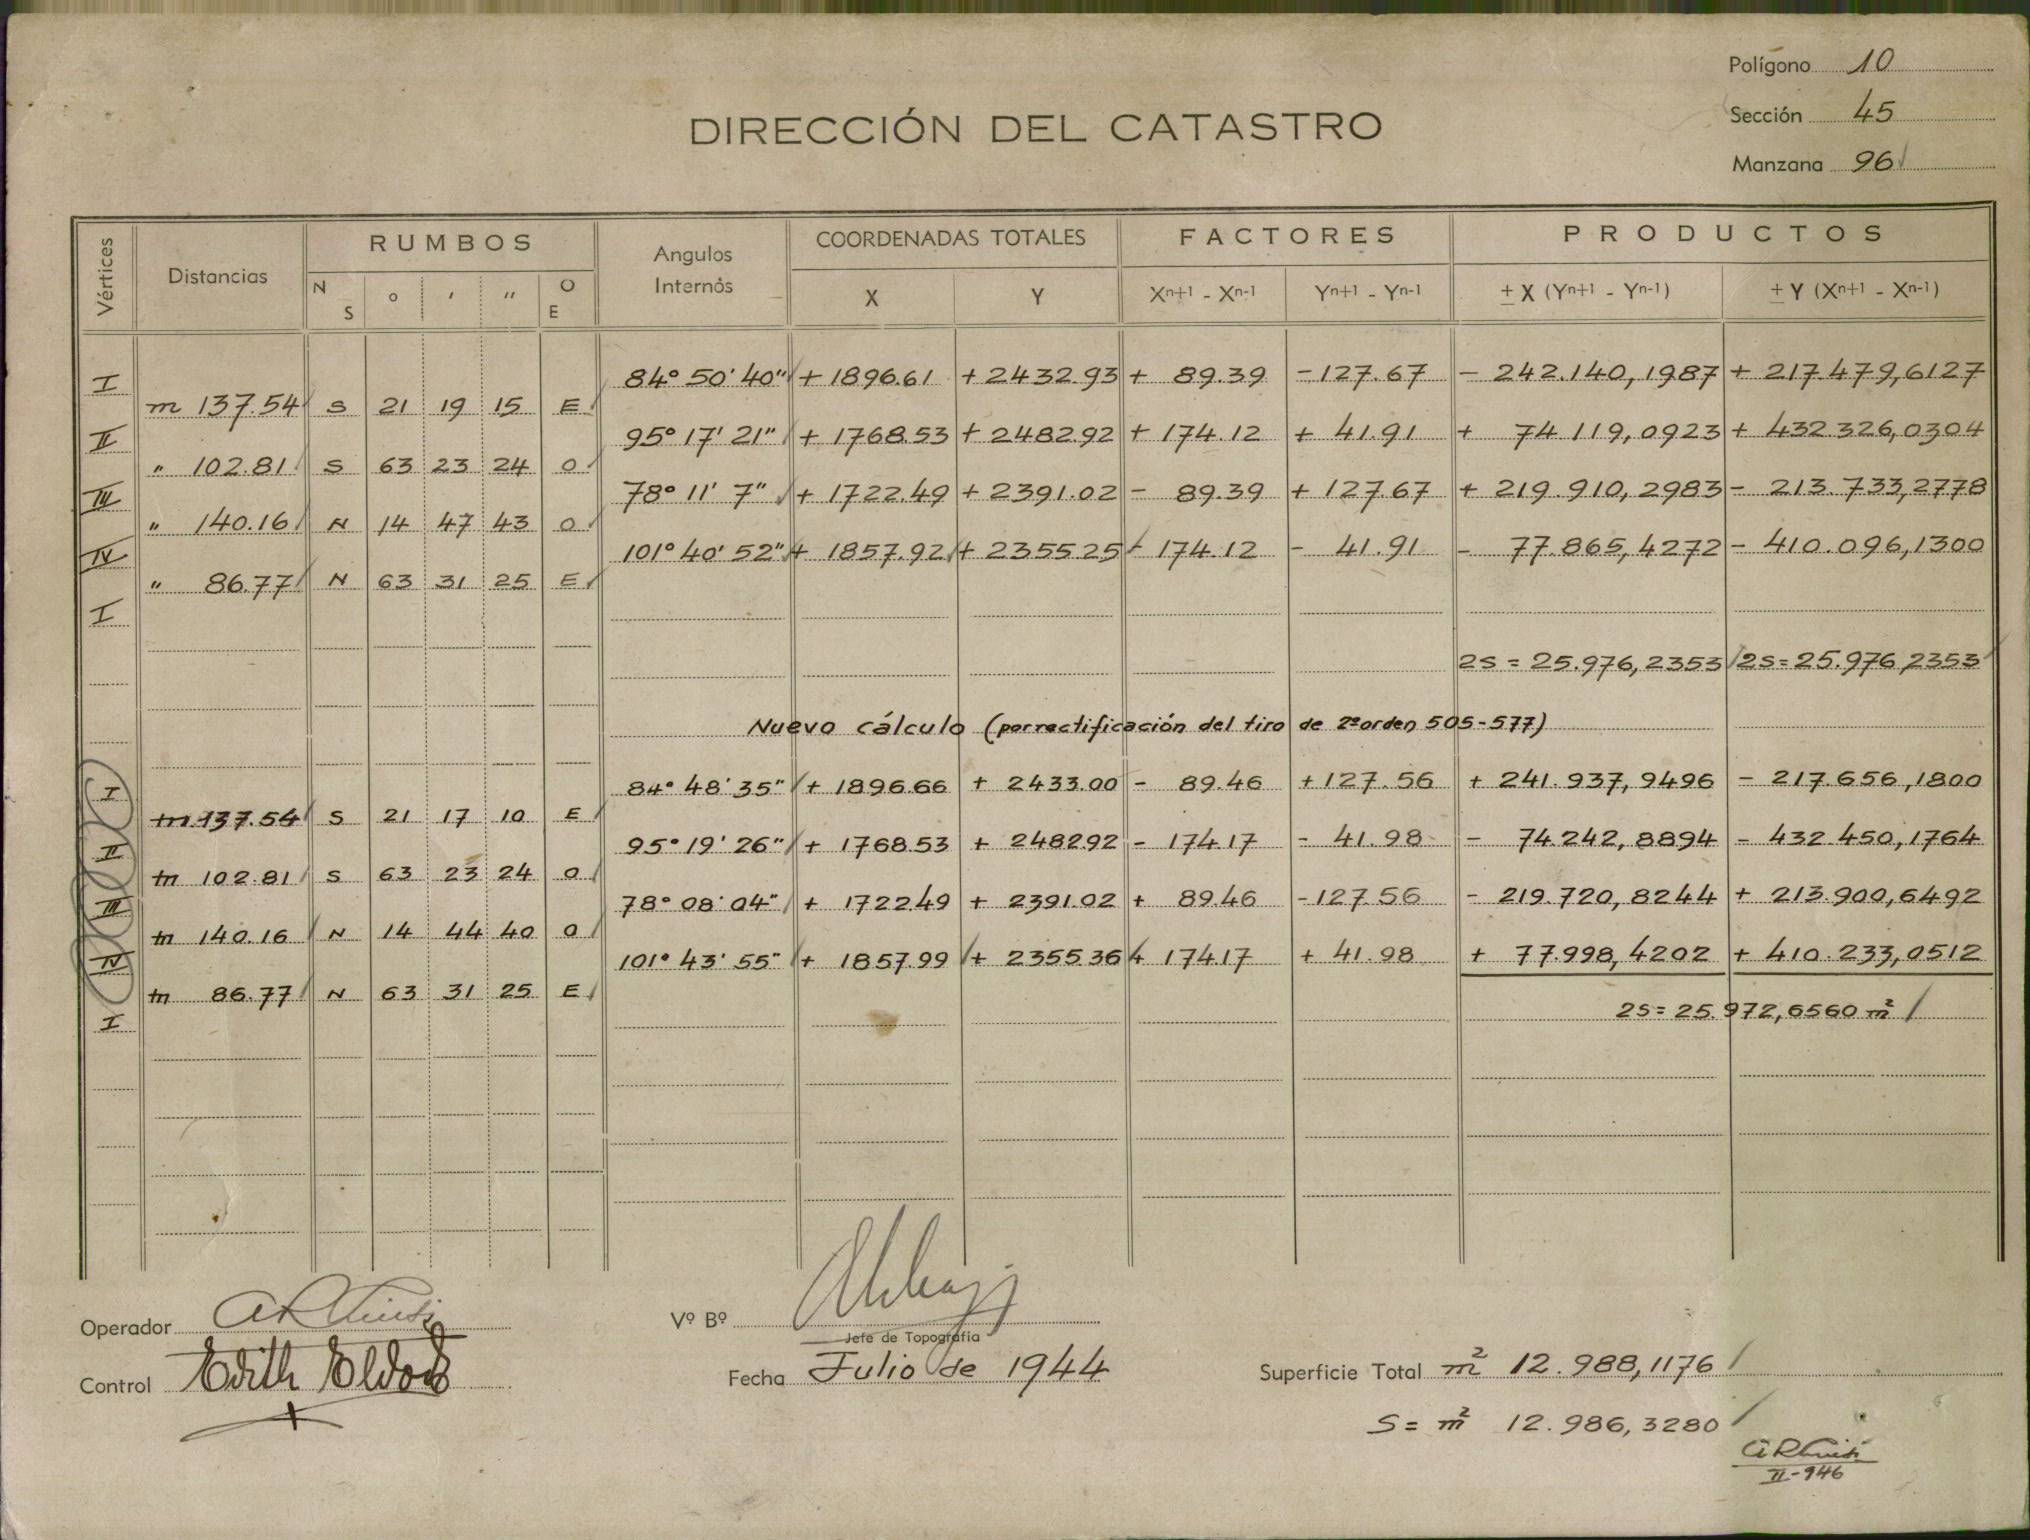 Polígono 10
Sección 45
Manzana 96
DIRECCIÓN DEL CATASTRO
Vértices Distancias RUMBOS Angulos Internos COORDENADAS TOTALES FACTORES PRODUCTOS
N S o ' " O E X Y Xn+1 - Xn-1 Yn+1 - Yn-1 ± X (Yn+1 - Yn-1) ± Y (Xn+1 - Xn-1)
I 84° 50' 40" + 1896.61 + 2432.93 + 89.39 - 127.67 - 242.140,1987 + 217.479,6127
m 137.54 S 21 19 15 E
II 95° 17' 21" + 1768.53 + 2482.92 + 174.12 + 41.91 + 74 119,0923 + 432.326,0304
" 102.81 S 63 23 24 O
III 78° 11' 7" + 1722.49 + 2391.02 - 89.39 + 127.67 + 219.910,2983 - 213.733,2778
" 140.16 N 14 47 43 O
IV 101° 40' 52" + 1857.92 + 2355.25 - 174.12 - 41.91 - 77.865,4272 - 410.096,1300
" 86.77 N 63 31 25 E
I
2S = 25.976,2353 2S = 25.976,2353
Nuevo cálculo (por rectificación del tiro de 2º orden 505-577)
I 84° 48' 35" + 1896.66 + 2433.00 - 89.46 + 127.56 + 241.937,9496 - 217.656,1800
m 137.54 S 21 17 10 E
II 95° 19' 26" + 1768.53 + 2482.92 - 174.17 - 41.98 - 74.242,8894 - 432.450,1764
m 102.81 S 63 23 24 O
III 78° 08' 04" + 1722.49 + 2391.02 + 89.46 - 127.56 - 219.720,8244 + 213.900,6492
m 140.16 N 14 44 40 O
IV 101° 43' 55" + 1857.99 + 2355.36 + 174.17 + 41.98 + 77.998,4202 + 410.233,0512
m 86.77 N 63 31 25 E
I
2S = 25.972,6560 m²
Operador
Vº Bº
Jefe de Topografía
Control Edith
Fecha Julio de 1944
Superficie Total m² 12.988,1176
S = m² 12.986,3280
II-946